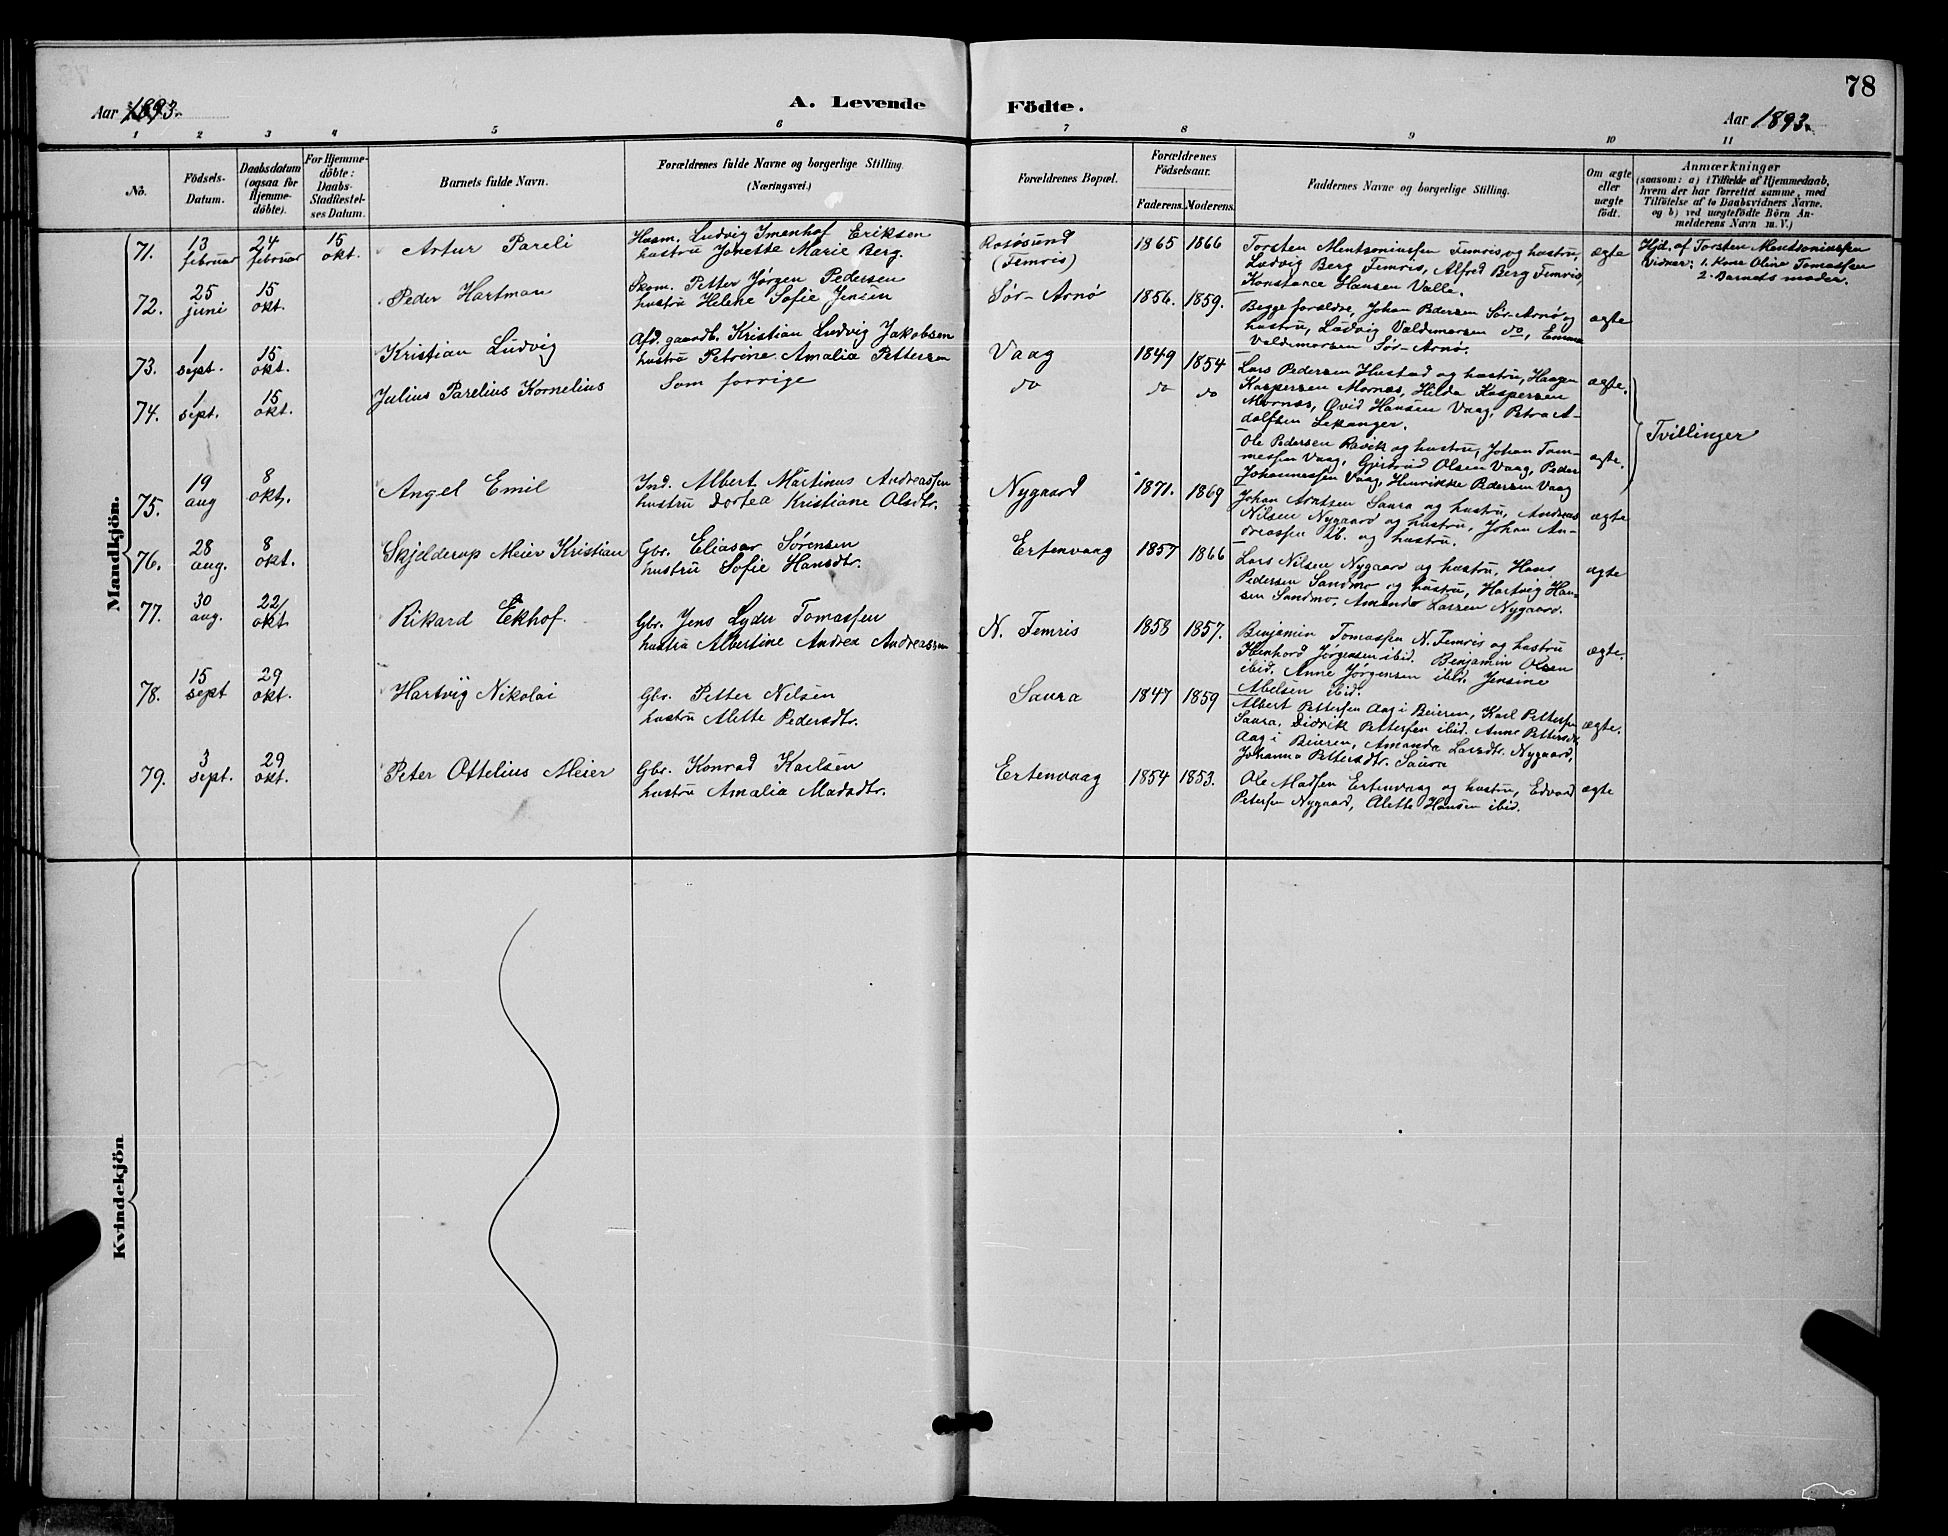 78
Aar 1893.
A. Levende Födte.
Aar 1893.
1 2 3 4 5 6 7 8 9 10 11
No.
Födsels-Datum.
Daabsdatum (ogsaa for Hjemme-döbte).
For Hjemme-döbte: Daabs-Stadfæstel-ses Datum.
Barnets fulde Navn.
Forældrenes fulde Navne og borgerlige Stilling.
(Næringsvei.)
Forældrenes Bopæl.
Forældrenes Födselsaar.
Faderens. Moderens.
Faddernes Navne og borgerlige Stilling.
Om ægte eller uægte födt.
Anmærkninger
(saasom: a) i Tilfælde af Hjemmedaab,
hvem der har forrettet samme, med
Tilföielse af to Daabsvidners Navne.
og b) ved uægtefödte Börn An-
melderens Navn m. V.)
Mandkjön.
71. 13 februar 24 februar 15 okt. Artur Pareli
Husm. Ludvig Imenhof Eriksen
hustru Jonette Marie Berg.
Rosøsund (Femris) 1865 1866
Torsten Mentsoniussen Femris, og hustru,
Ludvig Berg Femris, Alfred Berg Femris,
Konstance Hansen Valle.
ægte
Hjd. af Torsten Mentsoniussen
Vidner: 1. Kone Oline Tomassen
2. Barnets moder.
72. 25 juni 15 okt. Peder Hartman
Skom. Petter Jørgen Pedersen
hustru Helene Sofie Jensen
Sør-Arnø 1856. 1859.
Begge forældre, Johan Pedersen Sør-Arnø og
hustru, Ludvig Valdemarsen do, Emma
Valdemarsen Sør-Arnø.
ægte
73. 1 sept. 15 okt. Kristian Ludvig
Afd. gaardb. Kristian Ludvig Jakobsen
hustru Petrine Amalia Pettersen
Vaag 1849 1854
Lars Pedersen Hustad og hustru, Haagen
Kaspersen Mornæs, Hilda Kaspersen
Mornæs, Øvid Hansen Vaag, Petra A-
dolfsen Lekanger.
ægte.
74. 1 sept. 15 okt. Julius Parelius Kornelius
Som forrige
do do do
Ole Pedersen Ravik og hustru, Johan Tom-
messen Vaag, Gjertrud Olsen Vaag, Peder
Johannessen Vaag, Henrikke Pedersen Vaag
ægte.
Tvillinger
75. 19 aug 8 okt. Angel Emil
Ind. Albert Martinus Andreassen
hustru Dortea Kristiane Olsdtr.
Nygaard 1871. 1869
Johan Arntsen Saura og hustru, Andreas
Nilsen Nygaard og hustru, Johan An-
dreassen ib. og hustru.
ægte
76. 28 aug. 8 okt. Skjelderup Meier Kristian
Gbr. Eliasar Sørensen
hustru Sofie Hansdtr.
Ertenvaag 1857 1866
Lars Nilsen Nygaard og hustru, Hans
Pedersen Sandmo og hustru, Hartvig Han-
sen Sandmo, Amanda Larsen Nygaard.
ægte
77. 30 aug. 22 okt. Rikard Ekhof.
Gbr. Jens Lyder Tomassen
hustru Albertine Andrea Andreassen
N. Femris 1858 1857.
Benjamin Tomassen N. Femris og hustru
Jørgensen ibid. Benjamin Olsen
ibid. Anne Jørgensen ibid. Jensine
Abelsen ibid.
ægte.
78. 15 sept 29 okt. Hartvig Nikolai
Gbr. Petter Nilsen
hustru Alette Pedersdtr.
Saura 1847 1859
Albert Pettersen Aag i Beieren, Karl Pettersen
Saura, Didrik Pettersen ibid. Anne Pettersdtr.
Aag i Beieren, Amanda Larsdtr. Nygaard,
Johanna Pettersdtr. Saura
ægte.
79. 3 sept. 29 okt. Peter Ottelius Meier
Gbr. Konrad Karlsen
hustru Amalia Madsdtr.
Ertenvaag 1854 1853.
Ole Madsen Ertenvaag og hustru, Edvard
Petersen Nygaard, Alette Hansen ibid.
ægte
Kvindekjön